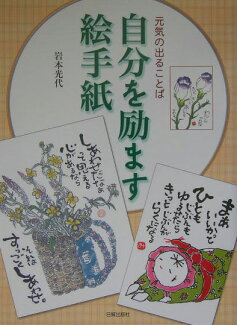 元気の出ることば
自分を励ます
絵手紙
岩本光代
しあわせだなぁ
って思える
心があるなら
すっごく
しあわせ。
まぁ
いいかで
ひとも
ゆるせたら
じぶんも
きっと
らくになる
日貿出版社